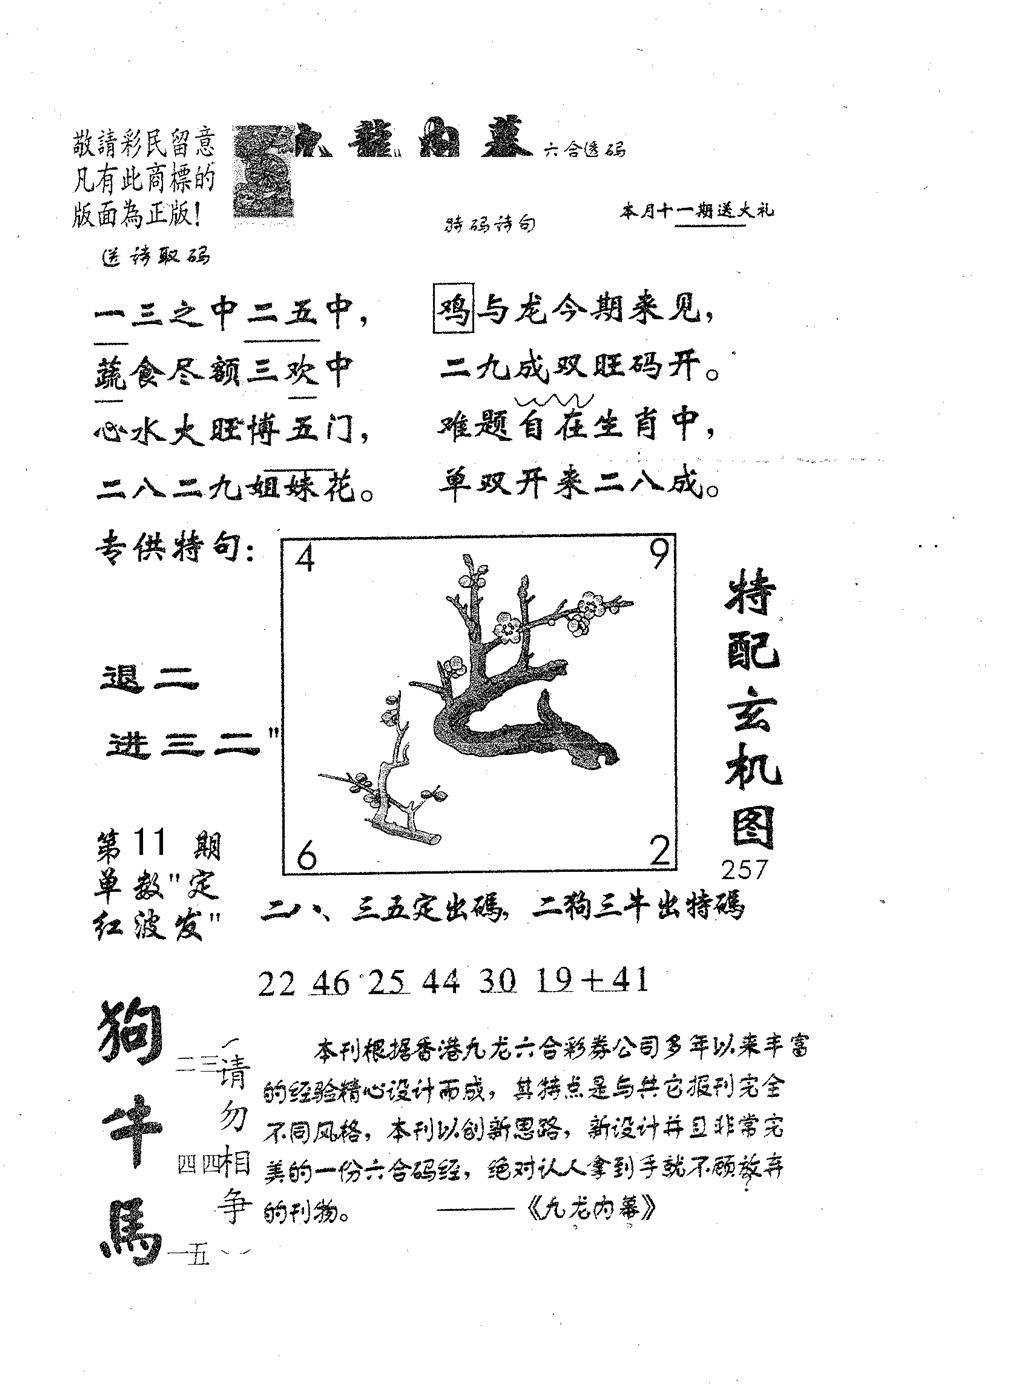 敬請彩民留意
凡有此商標的
版面為正版!
九龍内幕 六合透码
特码诗句
本月十一期送大礼
送诗取码
一三之中二五中,
蔬食尽额三欢中
心水火旺博五门,
二八二九姐妹花。
鸡与龙今期来见,
二九成双旺码开。
难题自在生肖中,
单双开来二八成。
专供特句:
退二
进三二"
4 9
6 2
特配玄机图
257
第11期
单数"定
红波发"
二八、三五定出碼,二狗三牛出特碼
22 46 25 44 30 19+41
狗 二三
牛 四四
馬 一五
(请勿相争)
本刊根据香港九龙六合彩券公司多年以来丰富
的经验精心设计而成,其特点是与共它报刊完全
不同风格,本刊以创新思路,新设计并且非常完
美的一份六合码经,绝对认人拿到手就不顾放弃
的刊物。 ——《九龙内幕》